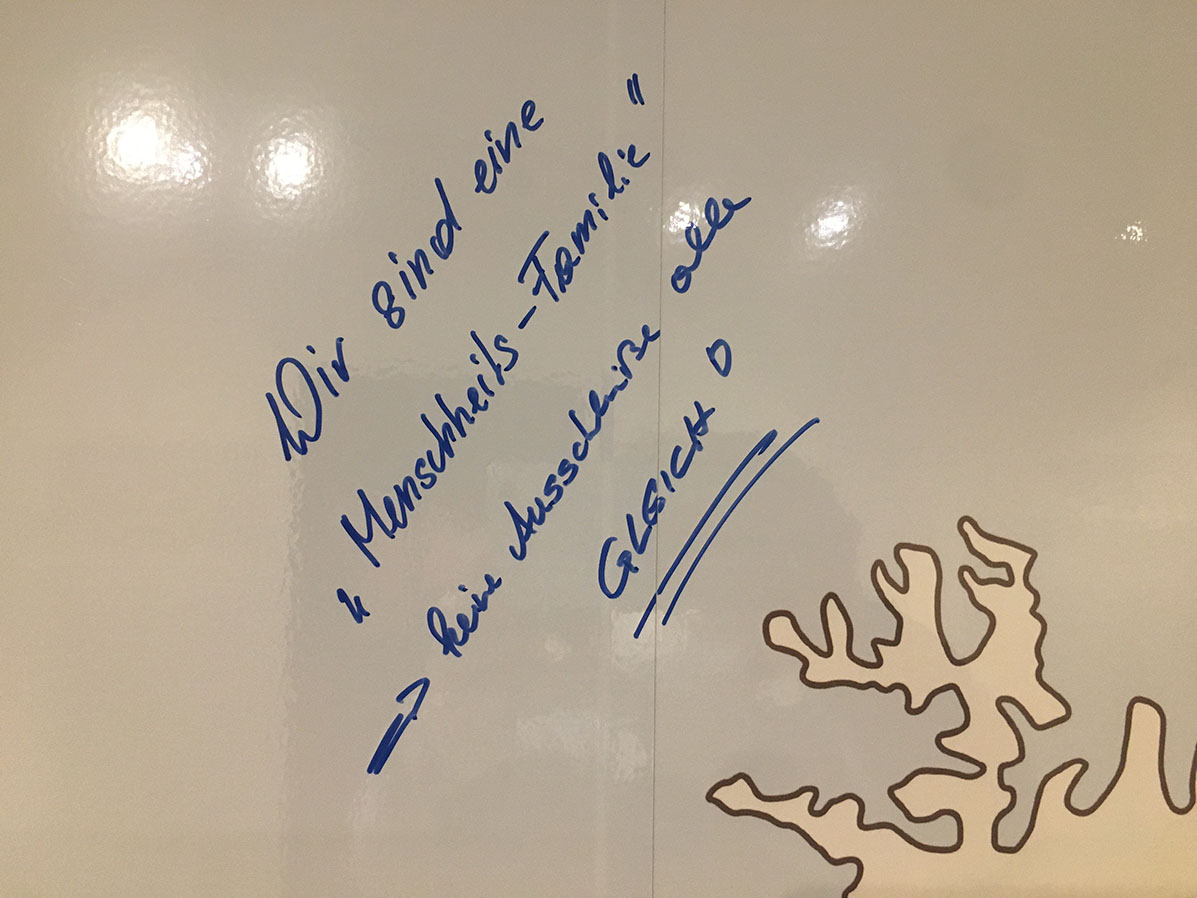 Wir sind eine
"Menschheits-Familie"
⇒ keine Ausschlüße alle
GLEICH